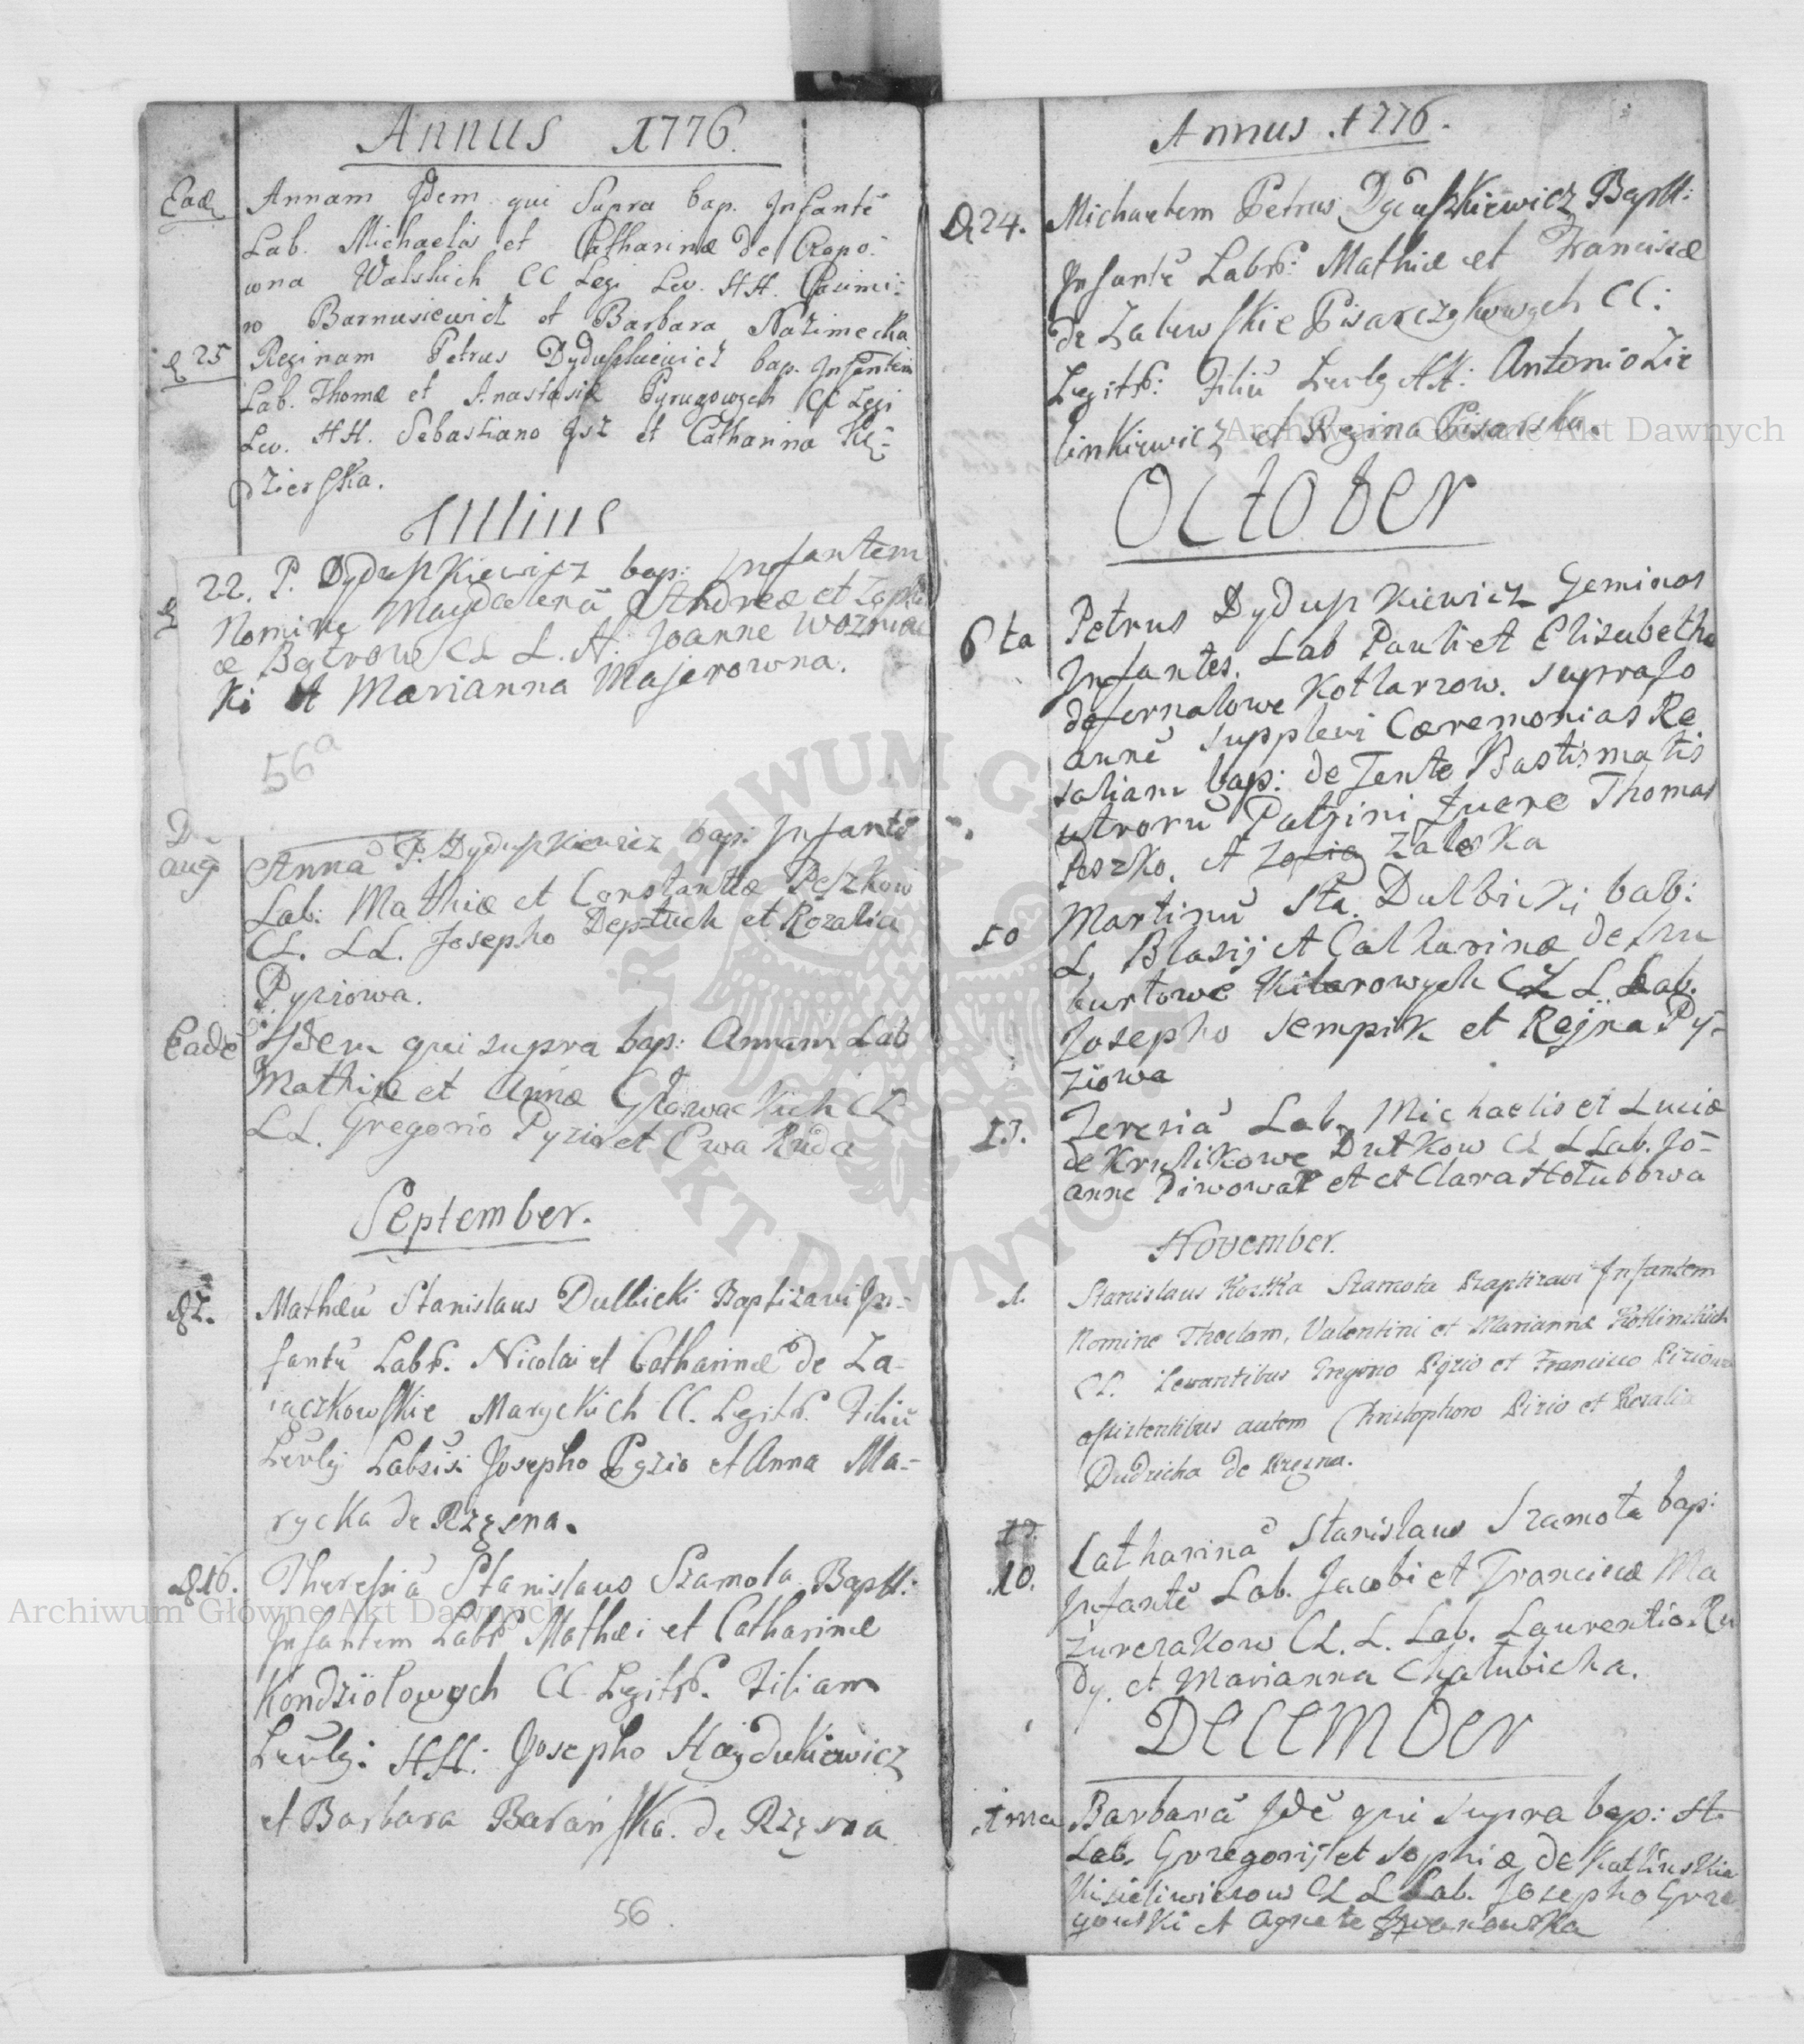 Annus 1776.
Eadē
Annam Jdem qui Supra bap. Infantē
Lab. Michaelis et Catharinæ de Czopo-
wna Walskich CC Legi Lev. HH. Casimi-
ro Barnusiewicz et Barbara Nazimecka
d 25
Reginam Petrus Dyduszkiewicz bap. Infantem
Lab. Thomæ et Anastasiæ Pyrugowych CC Legi
Lev. HH. Sebastiano Jsz et Catharina Kę-
dzierska.
Julius
22. P. Dydupkiewicz bap: Infantem
Nomine Magdalenā Andreæ et Zophi
æ Bątrow CL L. H. Joanne Woznia
ki et Marianna Majerowna.
56a
aug
Annā P. Dydupkiewicz bap: Infantē
Lab: Mathiæ et Constantiæ Peszkow
CL. LL. Josepho Deptuch et Rozalia
Pyziowa.
Eadē
Idem qui supra bap: Annam Lab
Mathiæ et Annæ Głowackich CL
LL. Gregorio Pyzio et Ewa Ruda
September.
Mathæū Stanislaus Dulbicki Baptizavi In-
fantē Labr. Nicolai et Catharinæ de Za-
iączkowskie Maryckich CC. Legitr. Filiū
Levtg Labsis: Josepho Pyzio et Anna Ma-
rycka de Rzęsna.
d 16.
Theresiā Stanislaus Szamota Baptt:
Infantem Labr Mathæi et Catharinæ
Kondziolowych CC Legitr. Filiam
Levtg: HH: Josepho Haydukiewicz
et Barbara Barańska. de Rzęsna
56
Annus 1776.
D 24.
Michaelem Petrus Dyduszkiewicz Baptt:
Infantē Labr: Mathiæ et Franciscæ
de Zalewskie Pisarczykowych CC:
Legitr: Filiū Levtg HH: Antonio Zie
linkiewicz et Regina Pisarska.
October
6ta
Petrus Dydupkiewicz Geminos
Infantes. Lab Pauli et Elizabetha
de fornalowe Kotlarzow. supra Jo
annē supplevi Cæremonias Ro
saliam bap: de fente Bastismatis
utrorū Patrini fuere Thomas
Peszko. et Zofia Zaleska
10
Martinū Sta. Dulbicki bab:
L. Blasij et Catharinæ de
burtowe Kitarowych CL L Lab.
Josepho Sempik et Rejna Py-
ziowa
Teresiā Lab. Michaelis et Luciæ
de Krulikowe Dutkow CL L Lab. Jo-
anne Piwowar et et Clara Hołubowa
November.
1.
Stanislaus Kostka Szamota Baptizavi Infantem
Nomine Theclam, Valentini et Mariannæ Kotlinskich
CL. Levantibus Gregorio Pyzio et Francisco Piziowa
assistentibus autem Christophoro Pizio et Rosalia
Dudzicha de Rzęzna.
10.
Catharinā Stanislaus Szamota bap:
Infantē Lab. Jacobi et Franciscæ Ma
zurczakow CL. L. Lab. Laurentio Ru
dy. et Marianna Chałubicha.
December
1ma
Barbarā Jdē qui supra bap: st.
Lab. Grzegorij et Sophiæ de Kotlinskie
Kisieliwiczow CL L Lab. Josepho Grze
gorski et Agnete Iwanowska
Archiwum Główne Akt Dawnych
Archiwum Główne Akt Dawnych
ARCHIWUM GŁÓWNE AKT DAWNYCH